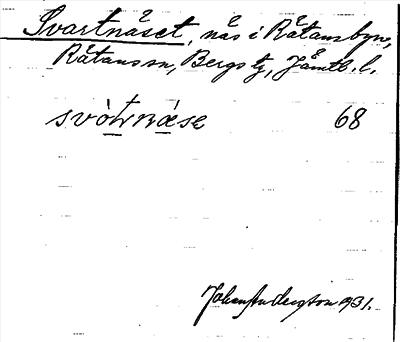 Svartnäset, näs i Rätansbyn,
Rätans sn, Bergs tg, Jämtl. l.
svòtnæse 68
Johan Andersson 1931.